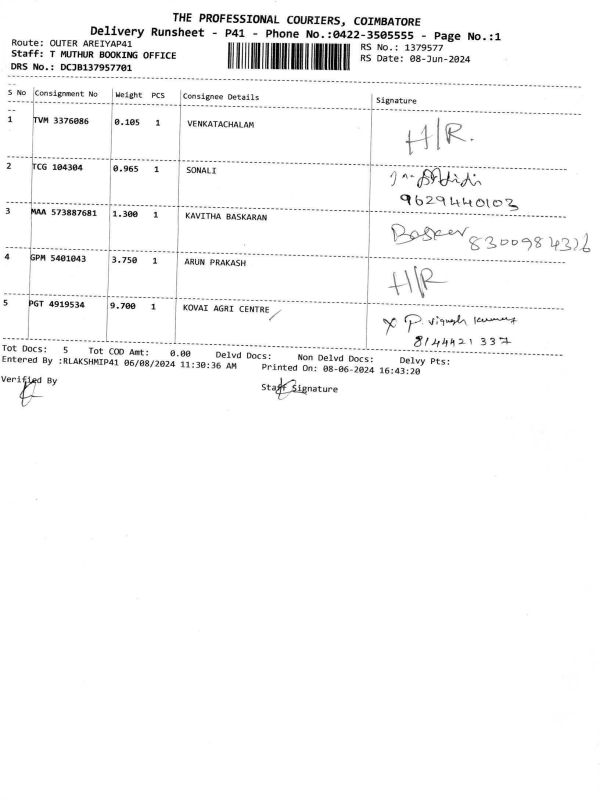 THE PROFESSIONAL COURIERS, COIMBATORE
Delivery Runsheet - P41 - Phone No.:0422-3505555 - Page No.:1
Route: OUTER AREIYAP41 RS No.: 1379577
Staff: T MUTHUR BOOKING OFFICE RS Date: 08-Jun-2024
DRS No.: DCJB137957701
S No Consignment No Weight PCS Consignee Details Signature
1 TVM 3376086 0.105 1 VENKATACHALAM H/R.
2 TCG 104304 0.965 1 SONALI
9629440103
3 MAA 573887681 1.300 1 KAVITHA BASKARAN Basker 8300984326
4 GPM 5401043 3.750 1 ARUN PRAKASH H/R
5 PGT 4919534 9.700 1 KOVAI AGRI CENTRE P. Vignesh Kumar
8144421337
Tot Docs: 5 Tot COD Amt: 0.00 Delvd Docs: Non Delvd Docs: Delvy Pts:
Entered By :RLAKSHMIP41 06/08/2024 11:30:36 AM Printed On: 08-06-2024 16:43:20
Verified By Staff Signature